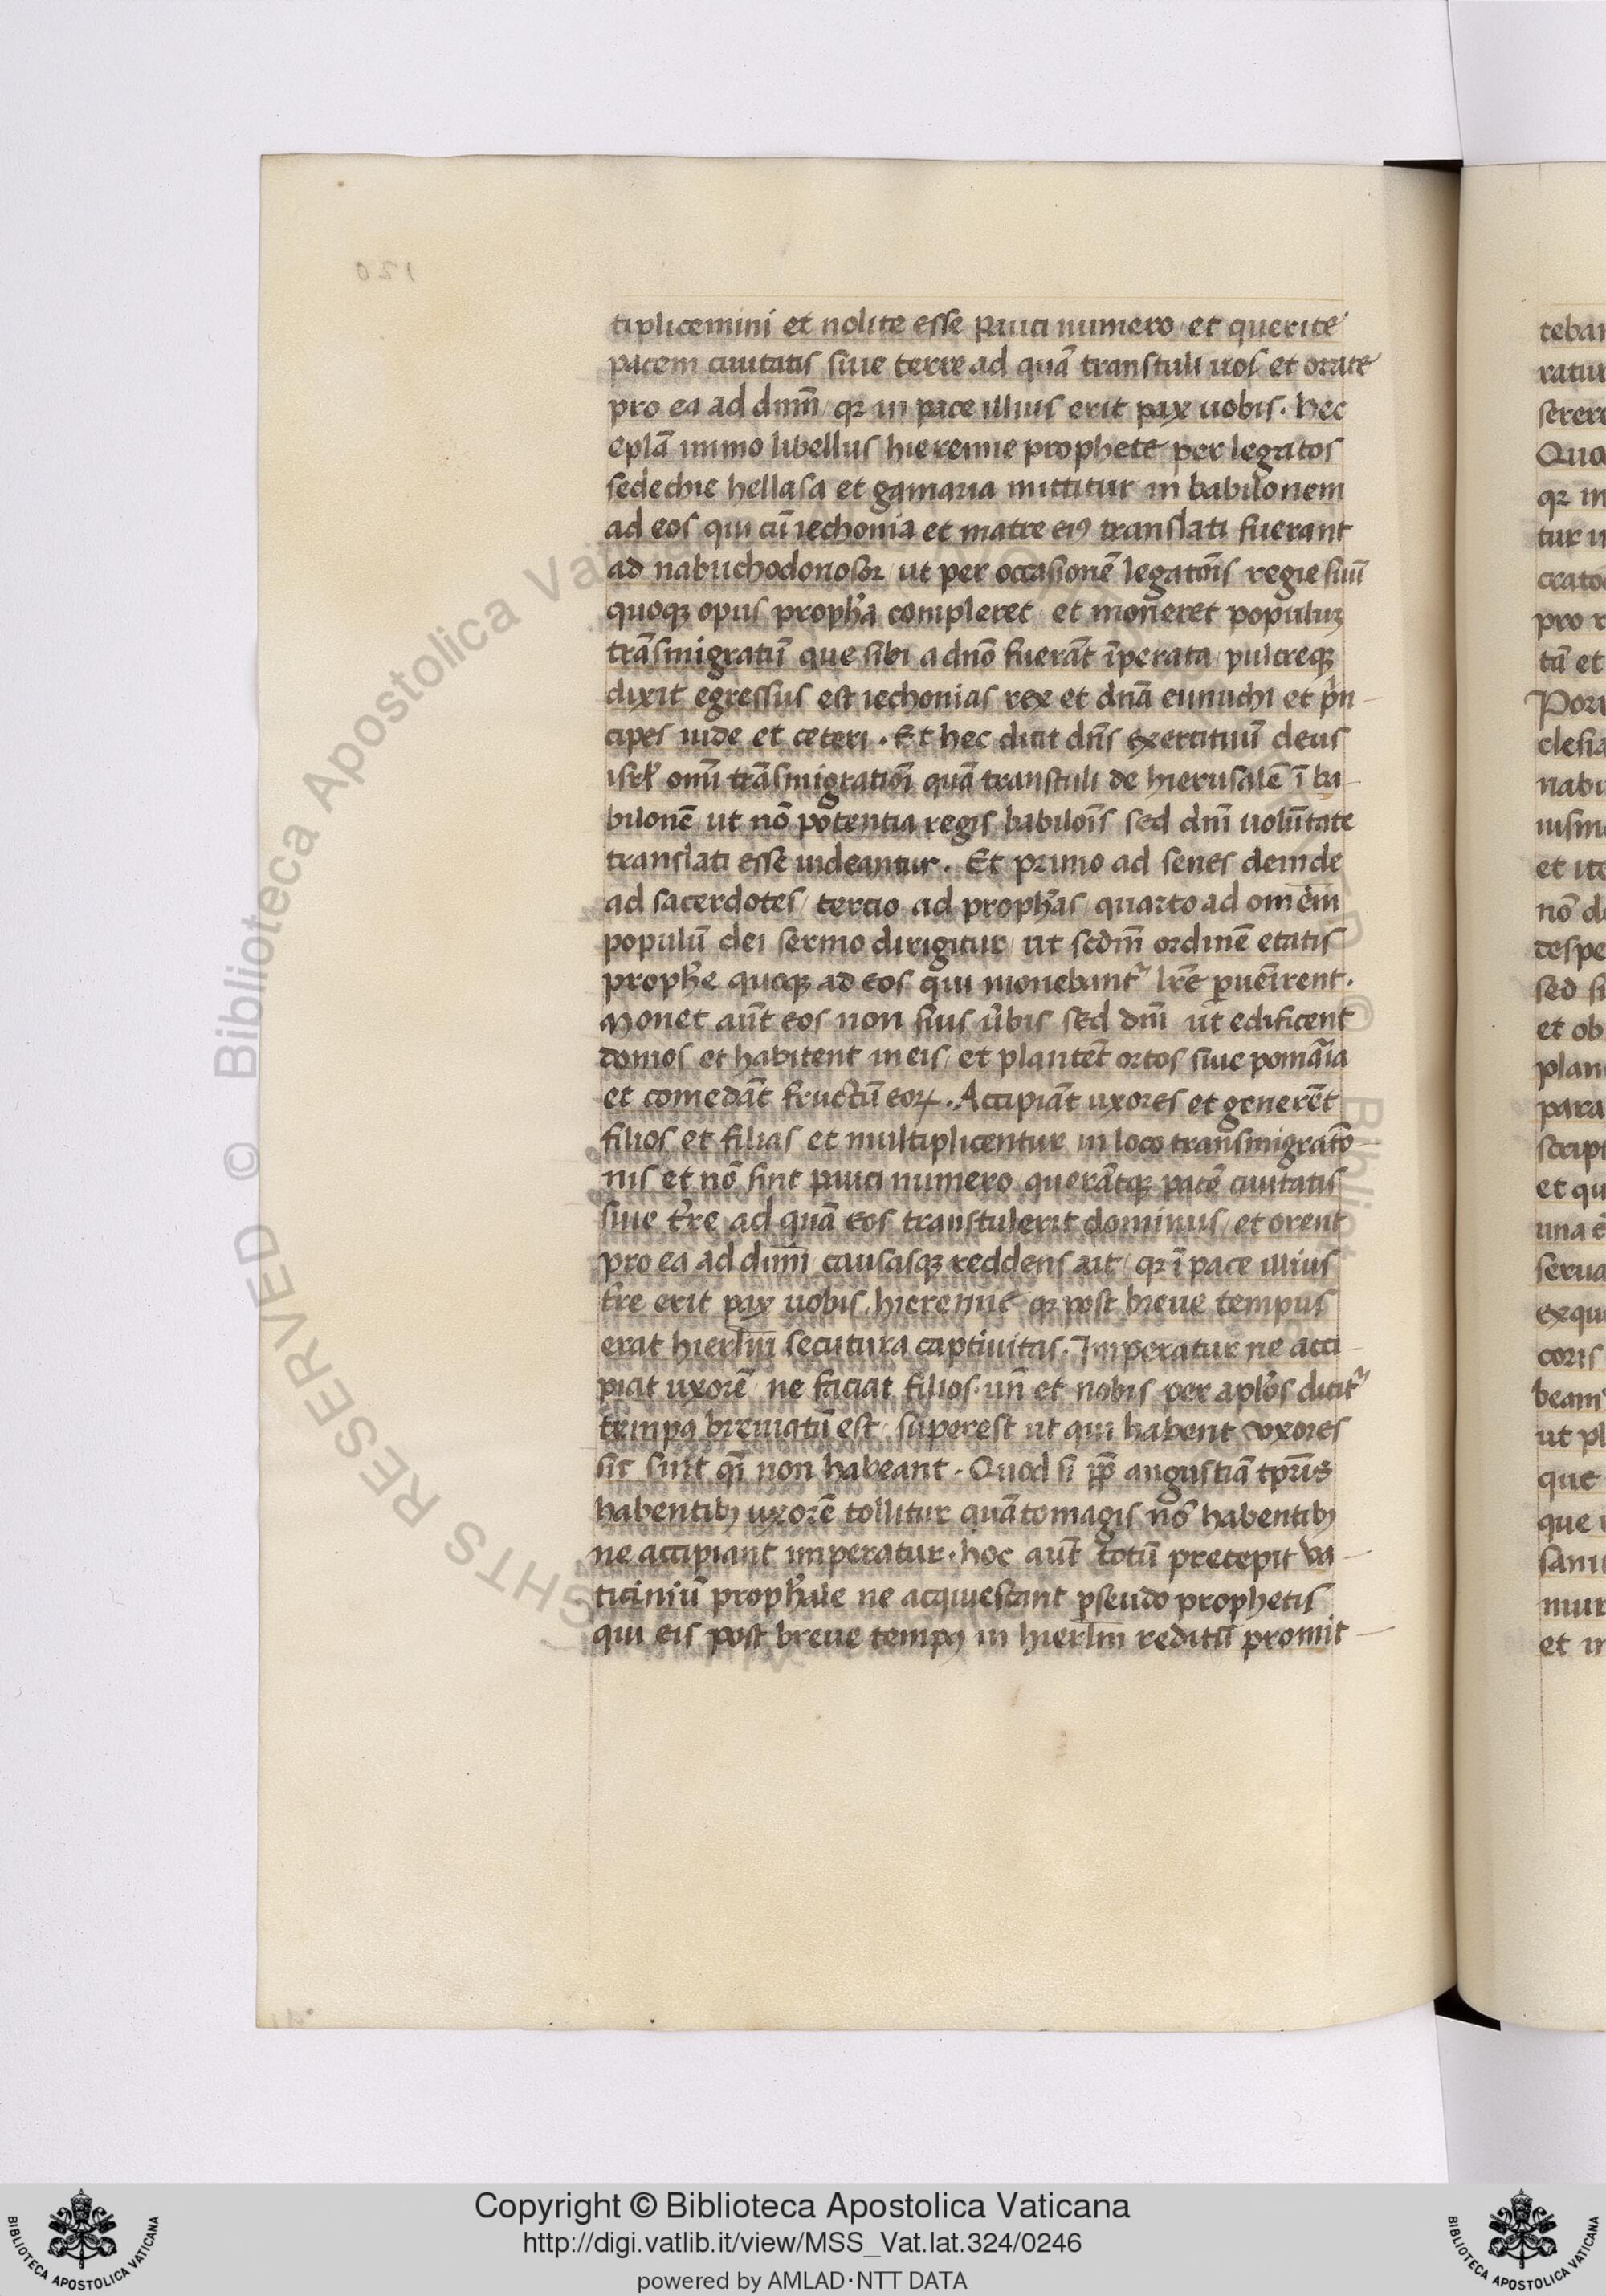 tiplicemini et nolite esse pauci numero et querite
pacem ciuitatis siue terre ad quā transtuli uos et orate
pro ea ad dnm̄ qꝛ in pace illius erit pax uobis. hec
eplā immo libellus hieremie prophete per legatos
sedechie hellasa et gamaria mittitur in babilonem
ad eos qui cū iechonia et matre eiꝰ translati fuerant
ad nabuchodonosor / ut per occasionē legatōis regie suū
quoqꝫ opus proph̄a compleret et moneret populuꝫ
trāsmigratiū que sibi a dnō fuerāt īperata / pulcreqꝫ
dixit egressus est iechonias rex et dnā eunuchi et prīn-
cipes iude et ceteri. Et hec dicit dn̄s exercituū deus
isrł omī trāsmigratiōi quā transtuli de hierusalē ī ba-
bilonē ut nō potentia regis babilōis sed dnī uolūtate
translati esse uideantur. Et primo ad senes deinde
ad sacerdotes / tercio ad proph̄as / quarto ad omēm
populū dei sermo dirigitur / ut scdm̄ ordinē etatis
proph̄e quoqꝫ ad eos qui monebant᷑ lr̄e ꝑuenīrent.
Monet aūt eos non suis ūbis sed dnī ut edificent
domos et habitent in eis / et plantēt ortos siue pomāia
et comedāt fructū eoꝝ. Accipiāt uxores et generēt
filios et filias et multiplicentur in loco transmigratō-
nis et nō sint pauci numero querātqꝫ pacē ciuitatis
siue tr̄re ad quā eos transtulerit dominus / et orent
pro ea ad dnm̄ / causasqꝫ reddens ait / qꝛ ī pace illius
tr̄re erit pax uobis. hieremie qꝛ post breue tempus
erat hierłm secutura captiuitas. Imperatur ne acci-
piat uxorē / ne faciat filios. un̄ et nobis per aplōs dicit᷑
tempꝰ breuiatū est / superest ut qui habent vxores
sic sint qī non habeant. Quod si ꝓp̄ angustiā tpr̄is
habentibꝫ uxorē tollitur quāto magis nō habentibꝫ
ne accipiant imperatur. hoc aūt totū precepit va-
ticiniū proph̄ale ne acquiescant pseudo prophetis
qui eis post breue tempꝰ in hierłm reditū promit-
120
teban
ratur
serere
Quo
qꝛ in
tur u
pro
tā et
clesia
nabu
et ite
nō de
despe
sed si
et ob
plan
para
et qu
una
serua
exqu
coris
ut pl
que
que
mur
et in
© Biblioteca Apostolica Vaticana
RIGHTS RESERVED
Copyright © Biblioteca Apostolica Vaticana
http://digi.vatlib.it/view/MSS_Vat.lat.324/0246
powered by AMLAD·NTT DATA
BIBLIOTECA APOSTOLICA VATICANA
BIBLIOTECA APOSTOLICA VATICANA